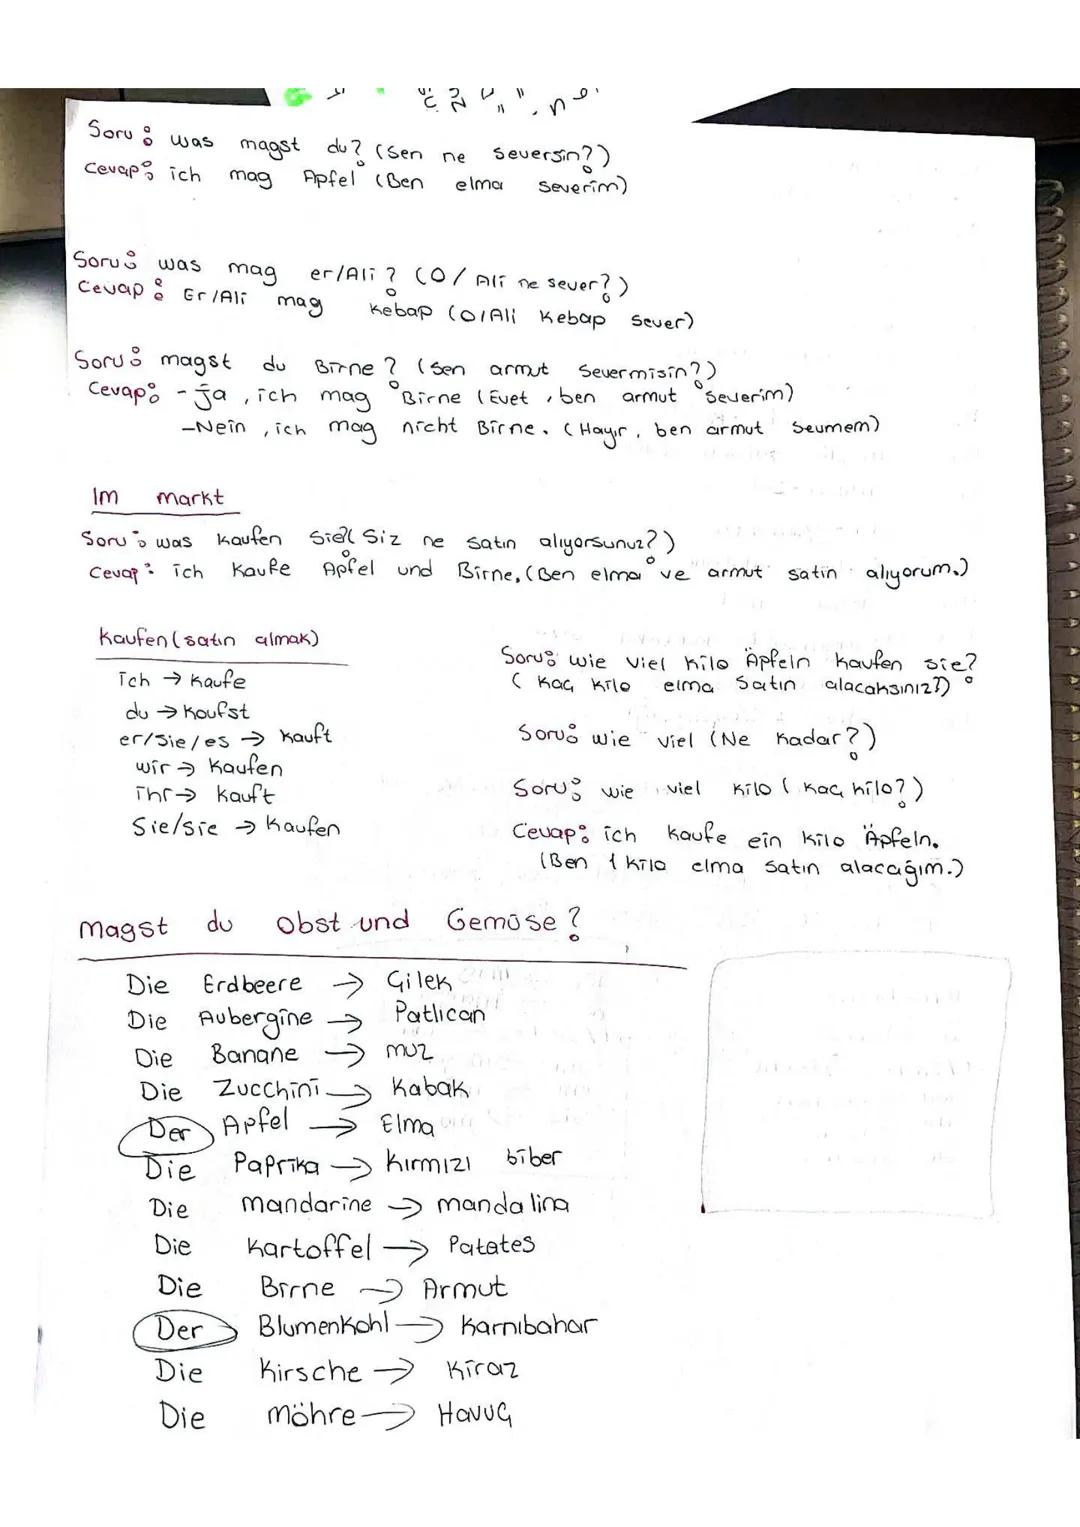 Soru: was magst du? (Sen ne seversin?)
Cevap: ich mag Apfel (Ben elma severim)
Soru: was mag er/Ali? (O/Ali ne sever?)
Cevap: Er/Ali mag Kebap (O/Ali Kebap sever)
Soru: magst du Birne? (Sen armut severmisin?)
Cevap: -ja, ich mag Birne (Evet, ben armut severim)
-Nein, ich mag nicht Birne. (Hayır, ben armut sevmem)
Im markt
Soru: was kaufen Sie? (Siz ne satın alıyorsunuz?)
Cevap: ich kaufe Apfel und Birne. (Ben elma ve armut satın alıyorum.)
Kaufen (satın almak)
ich → kaufe
du → kaufst
er/sie/es → kauft
wir → kaufen
ihr → kauft
Sie/sie → kaufen
Soru: wie viel kilo Äpfeln kaufen sie?
(kaç kilo elma satın alacaksınız?)
Soru: wie viel (Ne kadar?)
Soru: wie viel kilo (kaç kilo?)
Cevap: ich kaufe ein kilo Äpfeln.
(Ben 1 kilo elma satın alacağım.)
magst du Obst und Gemüse?
Die Erdbeere → Çilek
Die Aubergine → Patlıcan
Die Banane → muz
Die Zucchini → Kabak
Der Apfel → Elma
Die Paprika → kırmızı biber
Die mandarine → mandalina
Die kartoffel → Patates
Die Birne → Armut
Der Blumenkohl → karnıbahar
Die kirsche → kiraz
Die möhre → Havuç